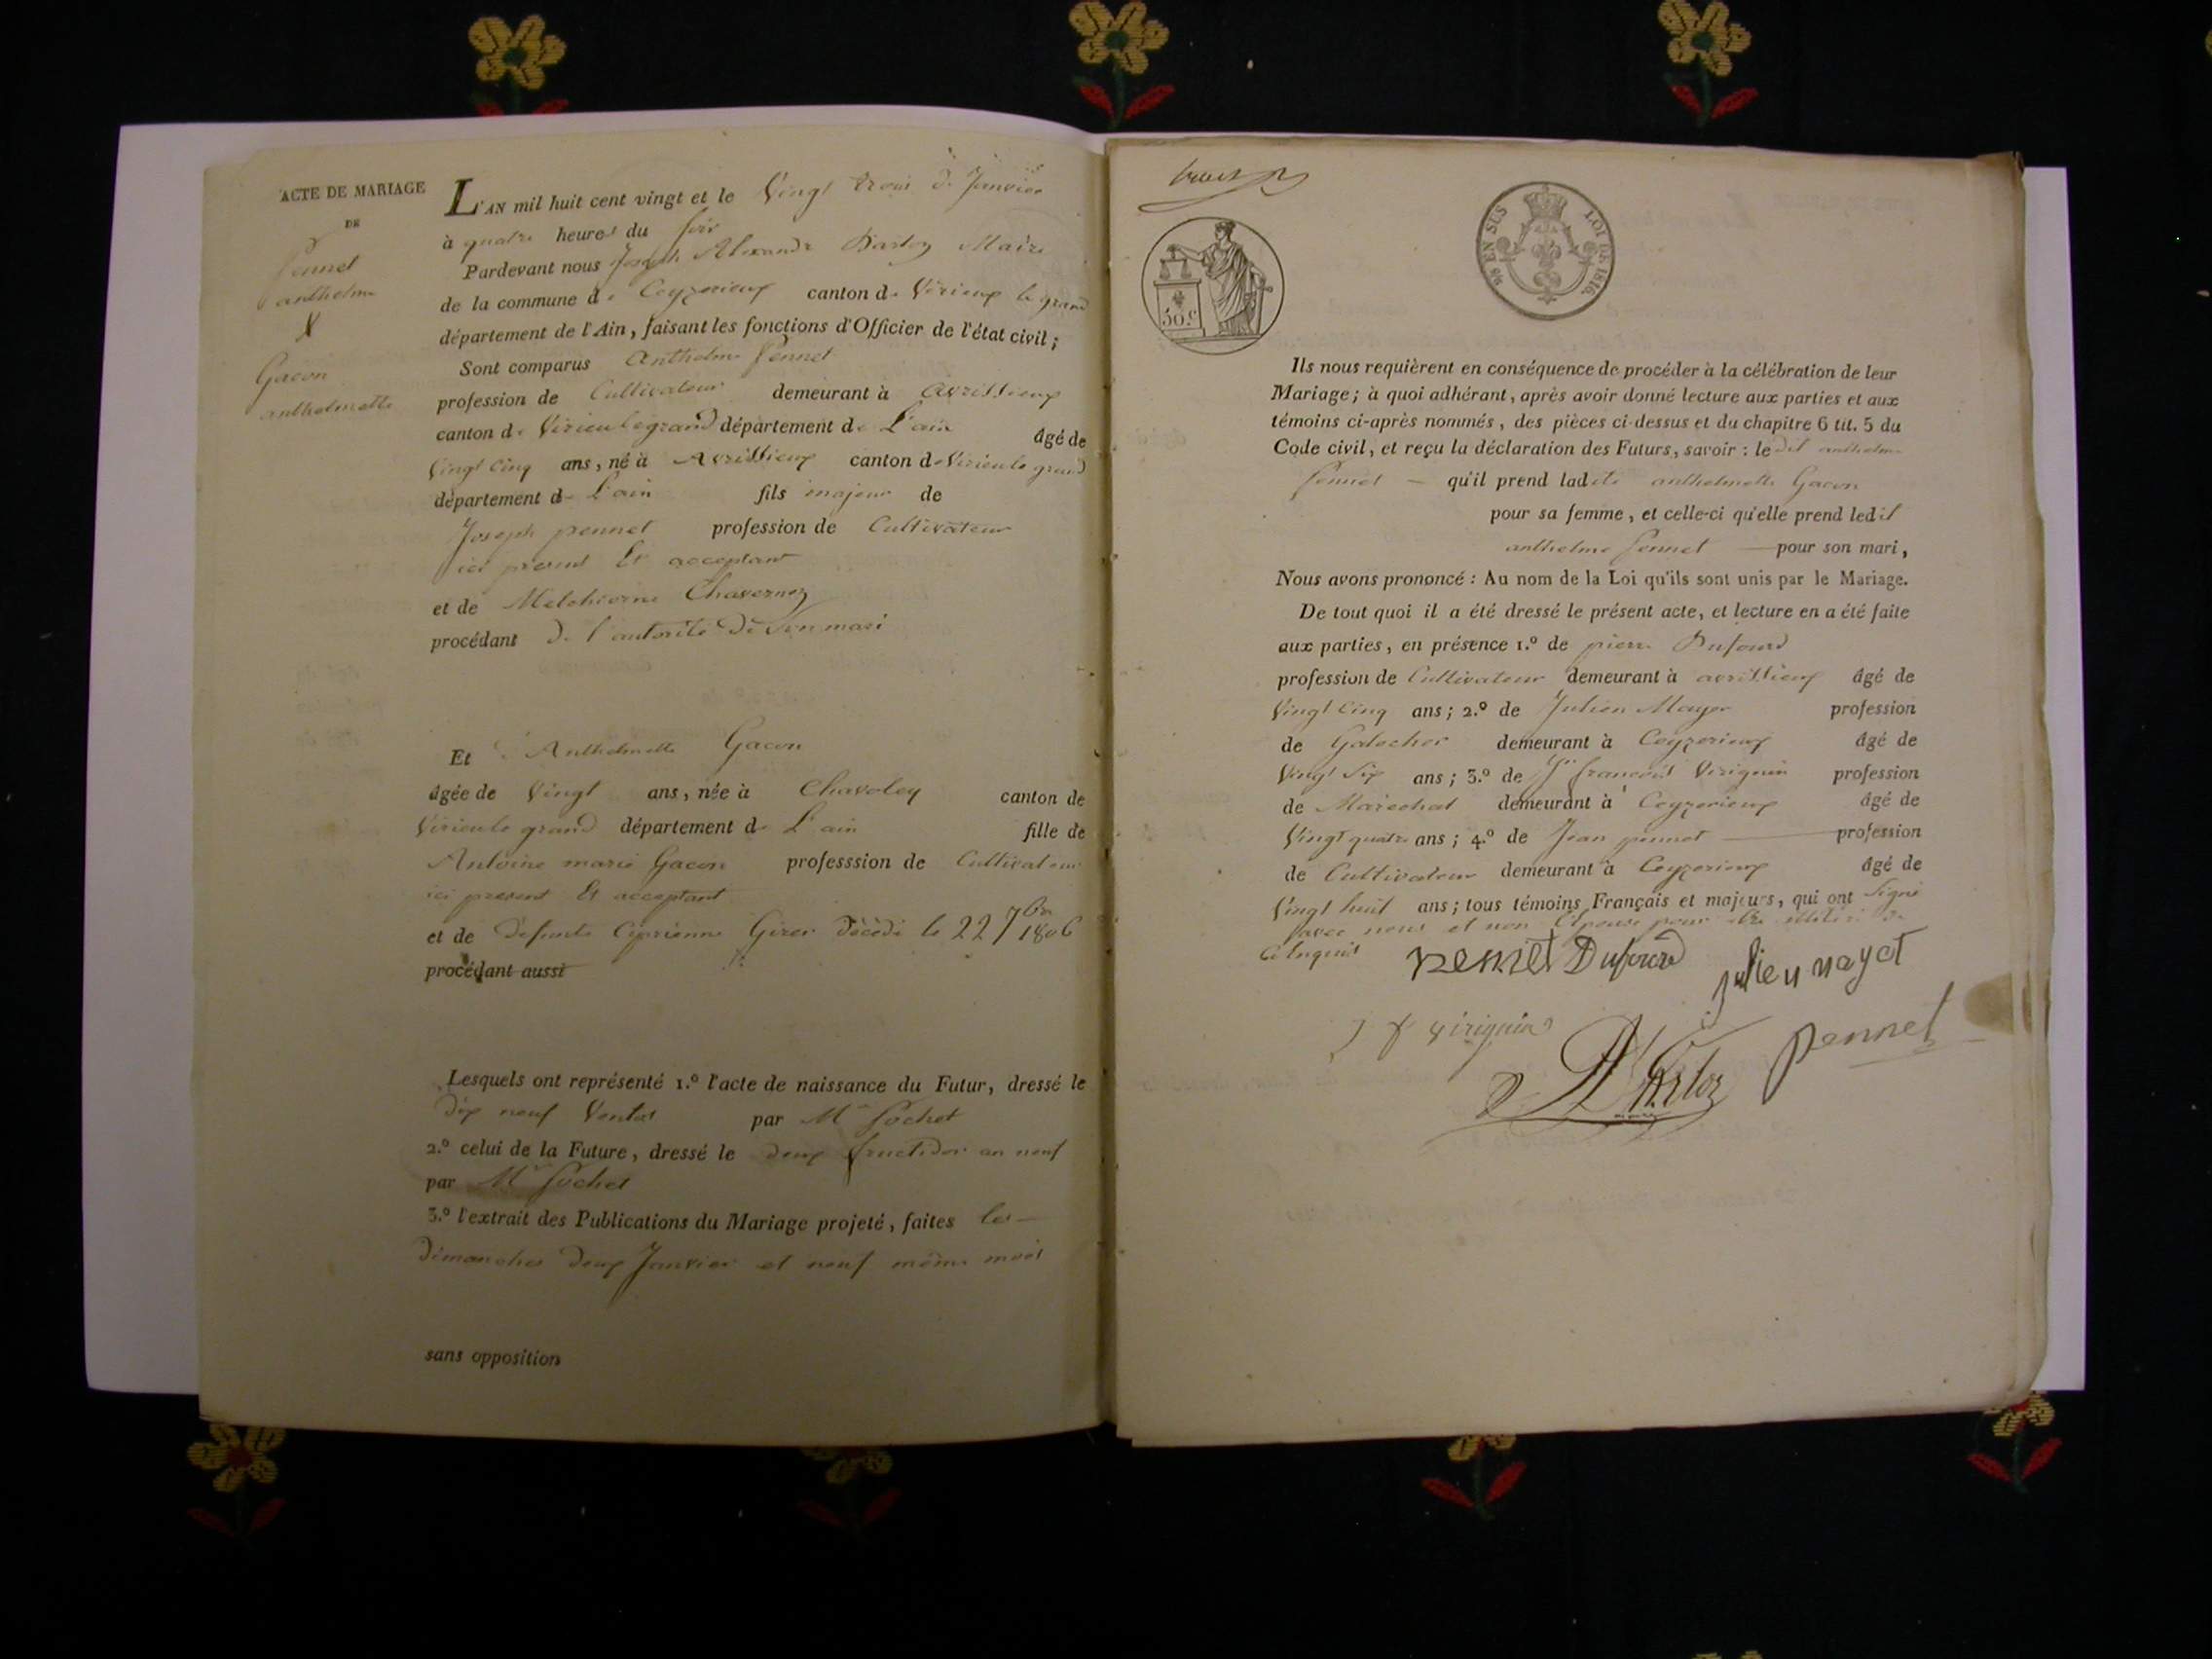 ACTE DE MARIAGE
DE
Pennet
anthelme
&
Gacon
anthelmette
L'AN mil huit cent vingt et le Vingt trois de Janvier
à quatre heures du soir
Pardevant nous Joseph Alexandre Maire
de la commune de Ceyzerieux canton de Virieux le grand
département de l'Ain, faisant les fonctions d'Officier de l'état civil;
Sont comparus Anthelme Pennet
profession de Cultivateur demeurant à avrissieux
canton de Virieu le grand département de L'ain âgé de
Vingt Cinq ans, né à Avrissieux canton de Virieu le grand
département de L'ain fils majeur de
Joseph pennet profession de Cultivateur
ici present Et acceptant
et de Melchiorne Chavernoz
procédant de l'autorité de son mari
Et Anthelmette Gacon
âgée de Vingt ans, née à Chavoley canton de
Virieu le grand département de L'ain fille de
Antoine marie Gacon professsion de Cultivateur
ici present Et acceptant
et de defunte Ciprienne Girer décédé le 22 7bre 1806
procédant aussi
Lesquels ont représenté 1.º l'acte de naissance du Futur, dressé le
dix neuf Ventos par Mr Pochet
2.º celui de la Future, dressé le deux fructidor an neuf
par Mr Pochet
3.º l'extrait des Publications du Mariage projeté, faites les
dimanches deux Janvier et neuf même mois
sans opposition
EN SUS LOI DE 1816.
50.c
Ils nous requièrent en conséquence de procéder à la célébration de leur
Mariage; à quoi adhérant, après avoir donné lecture aux parties et aux
témoins ci-après nommés, des pièces ci-dessus et du chapitre 6 tit. 5 du
Code civil, et reçu la déclaration des Futurs, savoir: le dit anthelme
Pennet qu'il prend ladite anthelmette Gacon
pour sa femme, et celle-ci qu'elle prend ledit
anthelme Pennet pour son mari,
Nous avons prononcé: Au nom de la Loi qu'ils sont unis par le Mariage.
De tout quoi il a été dressé le présent acte, et lecture en a été faite
aux parties, en présence 1.º de pierre Dufourd
profession de Cultivateur demeurant à avrissieux âgé de
Vingt Cinq ans; 2.º de Julien Mayet profession
de Galocher demeurant à Ceyzerieux âgé de
Vingt Six ans; 3.º de Jn francois Virignin profession
de Marechal demeurant à Ceyzerieux âgé de
Vingt quatre ans; 4.º de Jean pennet profession
de Cultivateur demeurant à Ceyzerieux âgé de
Vingt huit ans; tous témoins Français et majeurs, qui ont Signé
avec nous et non l'Epouse pour etre illitéré de
ce Enquis
pennet Dufourd Julien mayet
j f virignin
pennet